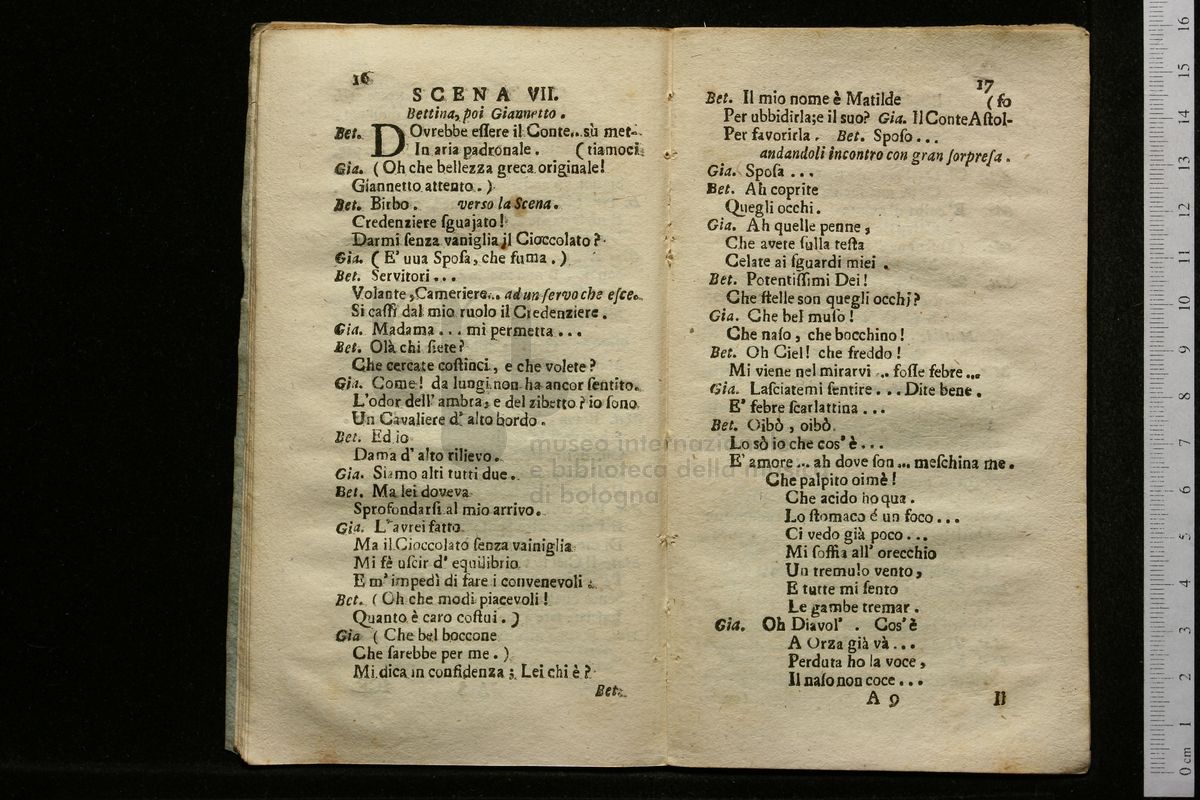 16
SCENA VII.
Bettina, poi Giannetto.
Bet. DOvrebbe eſſere il Conte.. sù met-
In aria padronale. (tiamoci
Gia. (Oh che bellezza greca originale!
Giannetto attento.)
Bet. Birbo. verso la Scena.
Credenziere ſguajato!
Darmi ſenza vaniglia il Cioccolato?
Gia. (E' uua Spoſa, che fuma.)
Bet. Servitori...
Volante, Cameriere... ad un ſervo che eſce.
Si caſſi dal mio ruolo il Credenziere.
Gia. Madama... mi permetta...
Bet. Olà chi ſiete?
Che cercate coſtinci, e che volete?
Gia. Come! da lungi non ha ancor ſentito
L'odor dell' ambra, e del zibetto? io ſono
Un Cavaliere d' alto bordo.
Bet. Ed io
Dama d' alto rilievo.
Gia. Siamo alti tutti due.
Bet. Ma lei doveva
Sprofondarſi al mio arrivo.
Gia. L'avrei fatto
Ma il Cioccolato ſenza vainiglia
Mi fè uſcir d' equilibrio
E m' impedì di fare i convenevoli.
Bet. (Oh che modi piacevoli!
Quanto è caro coſtui.)
Gia (Che bel boccone
Che ſarebbe per me.)
Mi dica in confidenza; Lei chi è?
Bet.
17
Bet. Il mio nome è Matilde (ſo
Per ubbidirla; e il suo? Gia. Il Conte Aſtol-
Per favorirla. Bet. Spoſo...
andandoli incontro con gran ſorpreſa.
Gia. Spoſa...
Bet. Ah coprite
Quegli occhi.
Gia. Ah quelle penne,
Che avete ſulla teſta
Celate ai ſguardi miei.
Bet. Potentiſſimi Dei!
Che ſtelle son quegli occhj?
Gia. Che bel muſo!
Che naſo, che bocchino!
Bet. Oh Ciel! che freddo!
Mi viene nel mirarvi... foſſe febre...
Gia. Laſciatemi ſentire... Dite bene.
E' febre ſcarlattina...
Bet. Oibò, oibò
Lo sò io che cos' è...
E' amore... ah dove ſon... meſchina me.
Che palpito oimè!
Che acido ho qua.
Lo ſtomaco é un foco...
Ci vedo già poco...
Mi ſoffia all' orecchio
Un tremulo vento,
E tutte mi ſento
Le gambe tremar.
Gia. Oh Diavol'. Cos'è
A Orza già và...
Perduta ho la voce,
Il naſo non coce...
A 9
Il
museo internazionale
e biblioteca della musica
di bologna
0 cm 1 2 3 4 5 6 7 8 9 10 11 12 13 14 15 16